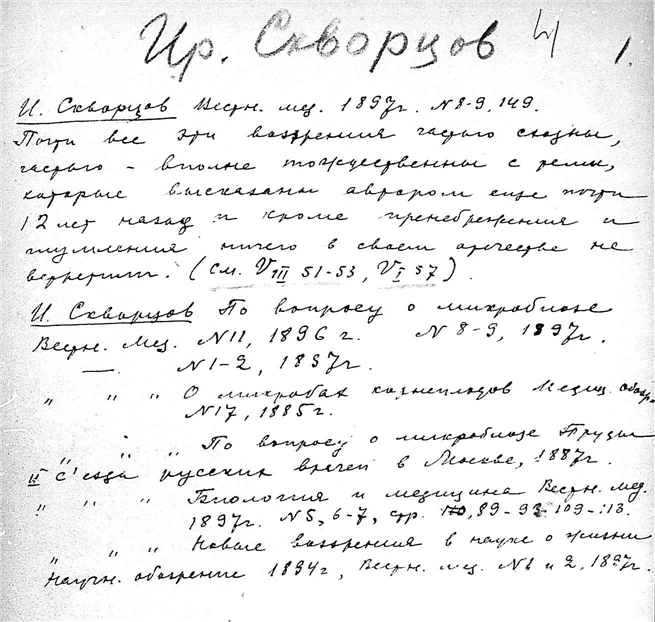 Ир. Скворцов 1.
И. Скворцов Вестн. мед. 1897г. N 8-9, 149.
Почти все эти воззрения частью сходны,
частью - вполне тождественны с теми,
которые высказаны автором еще почти
12 лет назад и кроме пренебрежения и
глумления ничего в своем отечестве не
встретили. (см. VIII 51-53, VI 57).
И. Скворцов По вопросу о микробиозе
Вестн. Мед. N 11, 1896 г. N 8-9, 1897г.
— N 1-2, 1897г.
" " " О микробах корнеплодов Медиц. обозр.
N17, 1885г.
" " " По вопросу о микробиозе Труды
II с'езда русских врачей в Москве, 1887г.
" " " Биология и медицина Вестн. мед.
1897г. N 5, 6-7, стр. 89-93 109-113.
" " " Новые воззрения в науке о жизни
Научн. обозрение 1894г, Вестн. мед. N 1 и 2, 1897г.